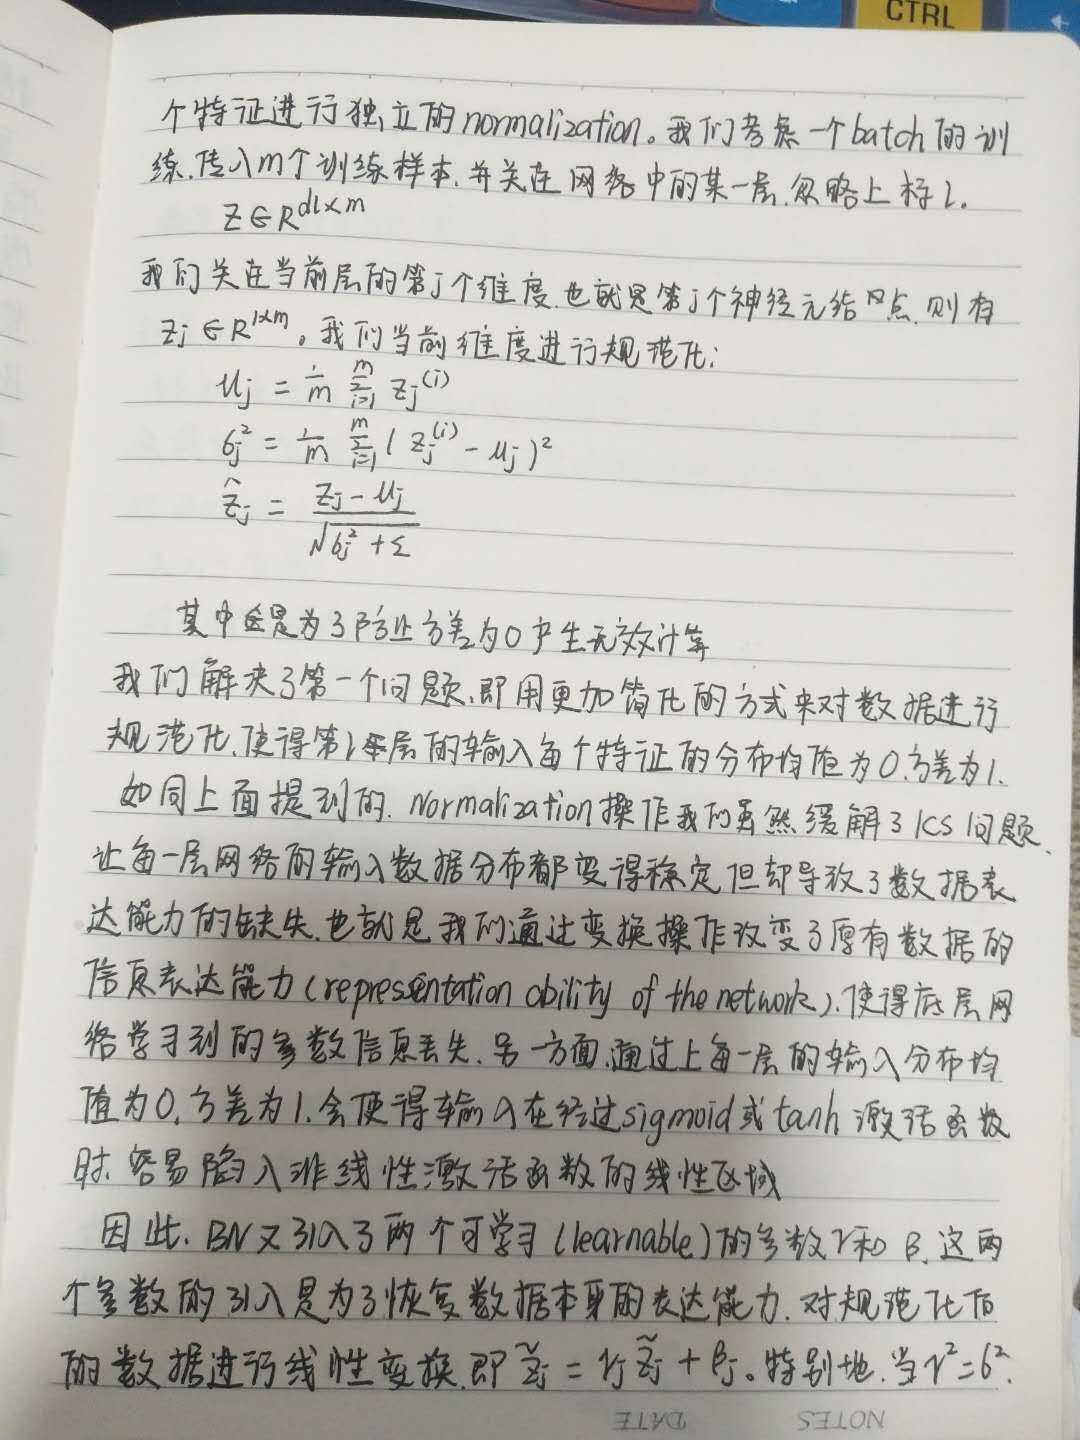 CTRL
个特征进行独立的normalization。我们考虑一个batch的训
练.传入m个训练样本.并关注网络中的某一层.忽略上标l.
Z∈R^{dl×m}
我们关注当前层的第j个维度.也就是第j个神经元结点.则有
Zj∈R^{1×m}。我们当前维度进行规范化:
μj = 1/m Σ_{i=1}^{m} Zj^{(i)}
σj² = 1/m Σ_{i=1}^{m} (Zj^{(i)} - μj)²
Ẑj = (Zj - μj) / √(σj² + ε)
其中ε是为了防止方差为0产生无效计算
我们解决了第一个问题.即用更加简化的方式来对数据进行
规范化.使得第l层的输入每个特征的分布均值为0.方差为1.
如同上面提到的.Normalization操作我们虽然缓解了ICS问题.
让每一层网络的输入数据分布都变得稳定但却导致了数据表
达能力的缺失.也就是我们通过变换操作改变了原有数据的
信息表达能力(representation ability of the network).使得底层网
络学习到的参数信息丢失.另一方面.通过上每一层的输入分布均
值为0.方差为1.会使得输入在经过sigmoid或tanh激活函数
时.容易陷入非线性激活函数的线性区域
因此.BN又引入了两个可学习(learnable)的参数γ和β.这两
个参数的引入是为了恢复数据本身的表达能力.对规范化后
的数据进行线性变换.即 Z̃j = γj Z̃j + βj。特别地.当γ²=σ².
NOTES DATE